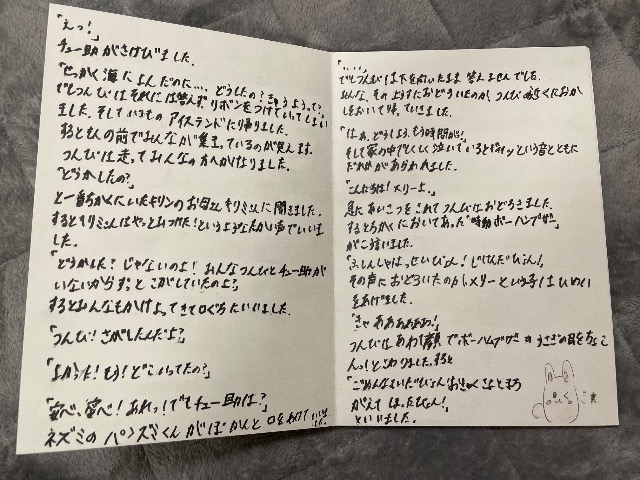 「えっ!」
チュー助がさけびました。
「せっかく海によんだのに…。どうしたの?きゅうようって?」
でしつんびはそれには答えず、リボンをつけていってしまい
ました。そしていつものアイスランドに帰りました。
すると人の前でみんなが集まっているのが見えます。
つんびは走ってみんなの方へかなりました。
「どうかしたの?」
と一番ちかくにいたキリンのお母さんキリミさんに聞きました。
するとキリミさんはやっとみつけた!というようなたかい声でいいま
した。
「どうかした?じゃないのよ!みんなつんびとチュー助が
いないからずっとさがしていたのよ?」
するとみんなもかけよってきて口ぐちにいいました。
「つんび!さがしたんだよ?」
「よかった!もう!どこいってたの?」
「安べ、安べ!あれっ!?でもチュー助は?」
ネズミのパンズミくんがぽかんと口をあけていいました。
「…。」
でもつんびは下を向いたまま答えませんでした。
みんな、そのようすにおどろいたのか、つんびに
をおいて帰っていきました。
「はぁ、どうしよう、もう時間が!」
そして家の中でしくしく泣いているとという音とともに
だれかがあらわれました。
「こんにちは!メリーよ。」
急にあいさつをされてつんびはおどろきました。
するとちかくにおいてあった"時動ボーハンブザー"
がこういいました。
「ふしんしゃはっせいぴょん!じけんだぴょん!」
その声におどろいたのかメリーという子はひめい
をあげました。
「きゃああああわっ!」
つんびはあわて顔でボーハムブザーのうさぎの目をちょこ
んっ!とさわりました。すると
「ごめんなさいだぴょん!おきゃくさまとまち
がえてしまったぴょん!」
といいました。